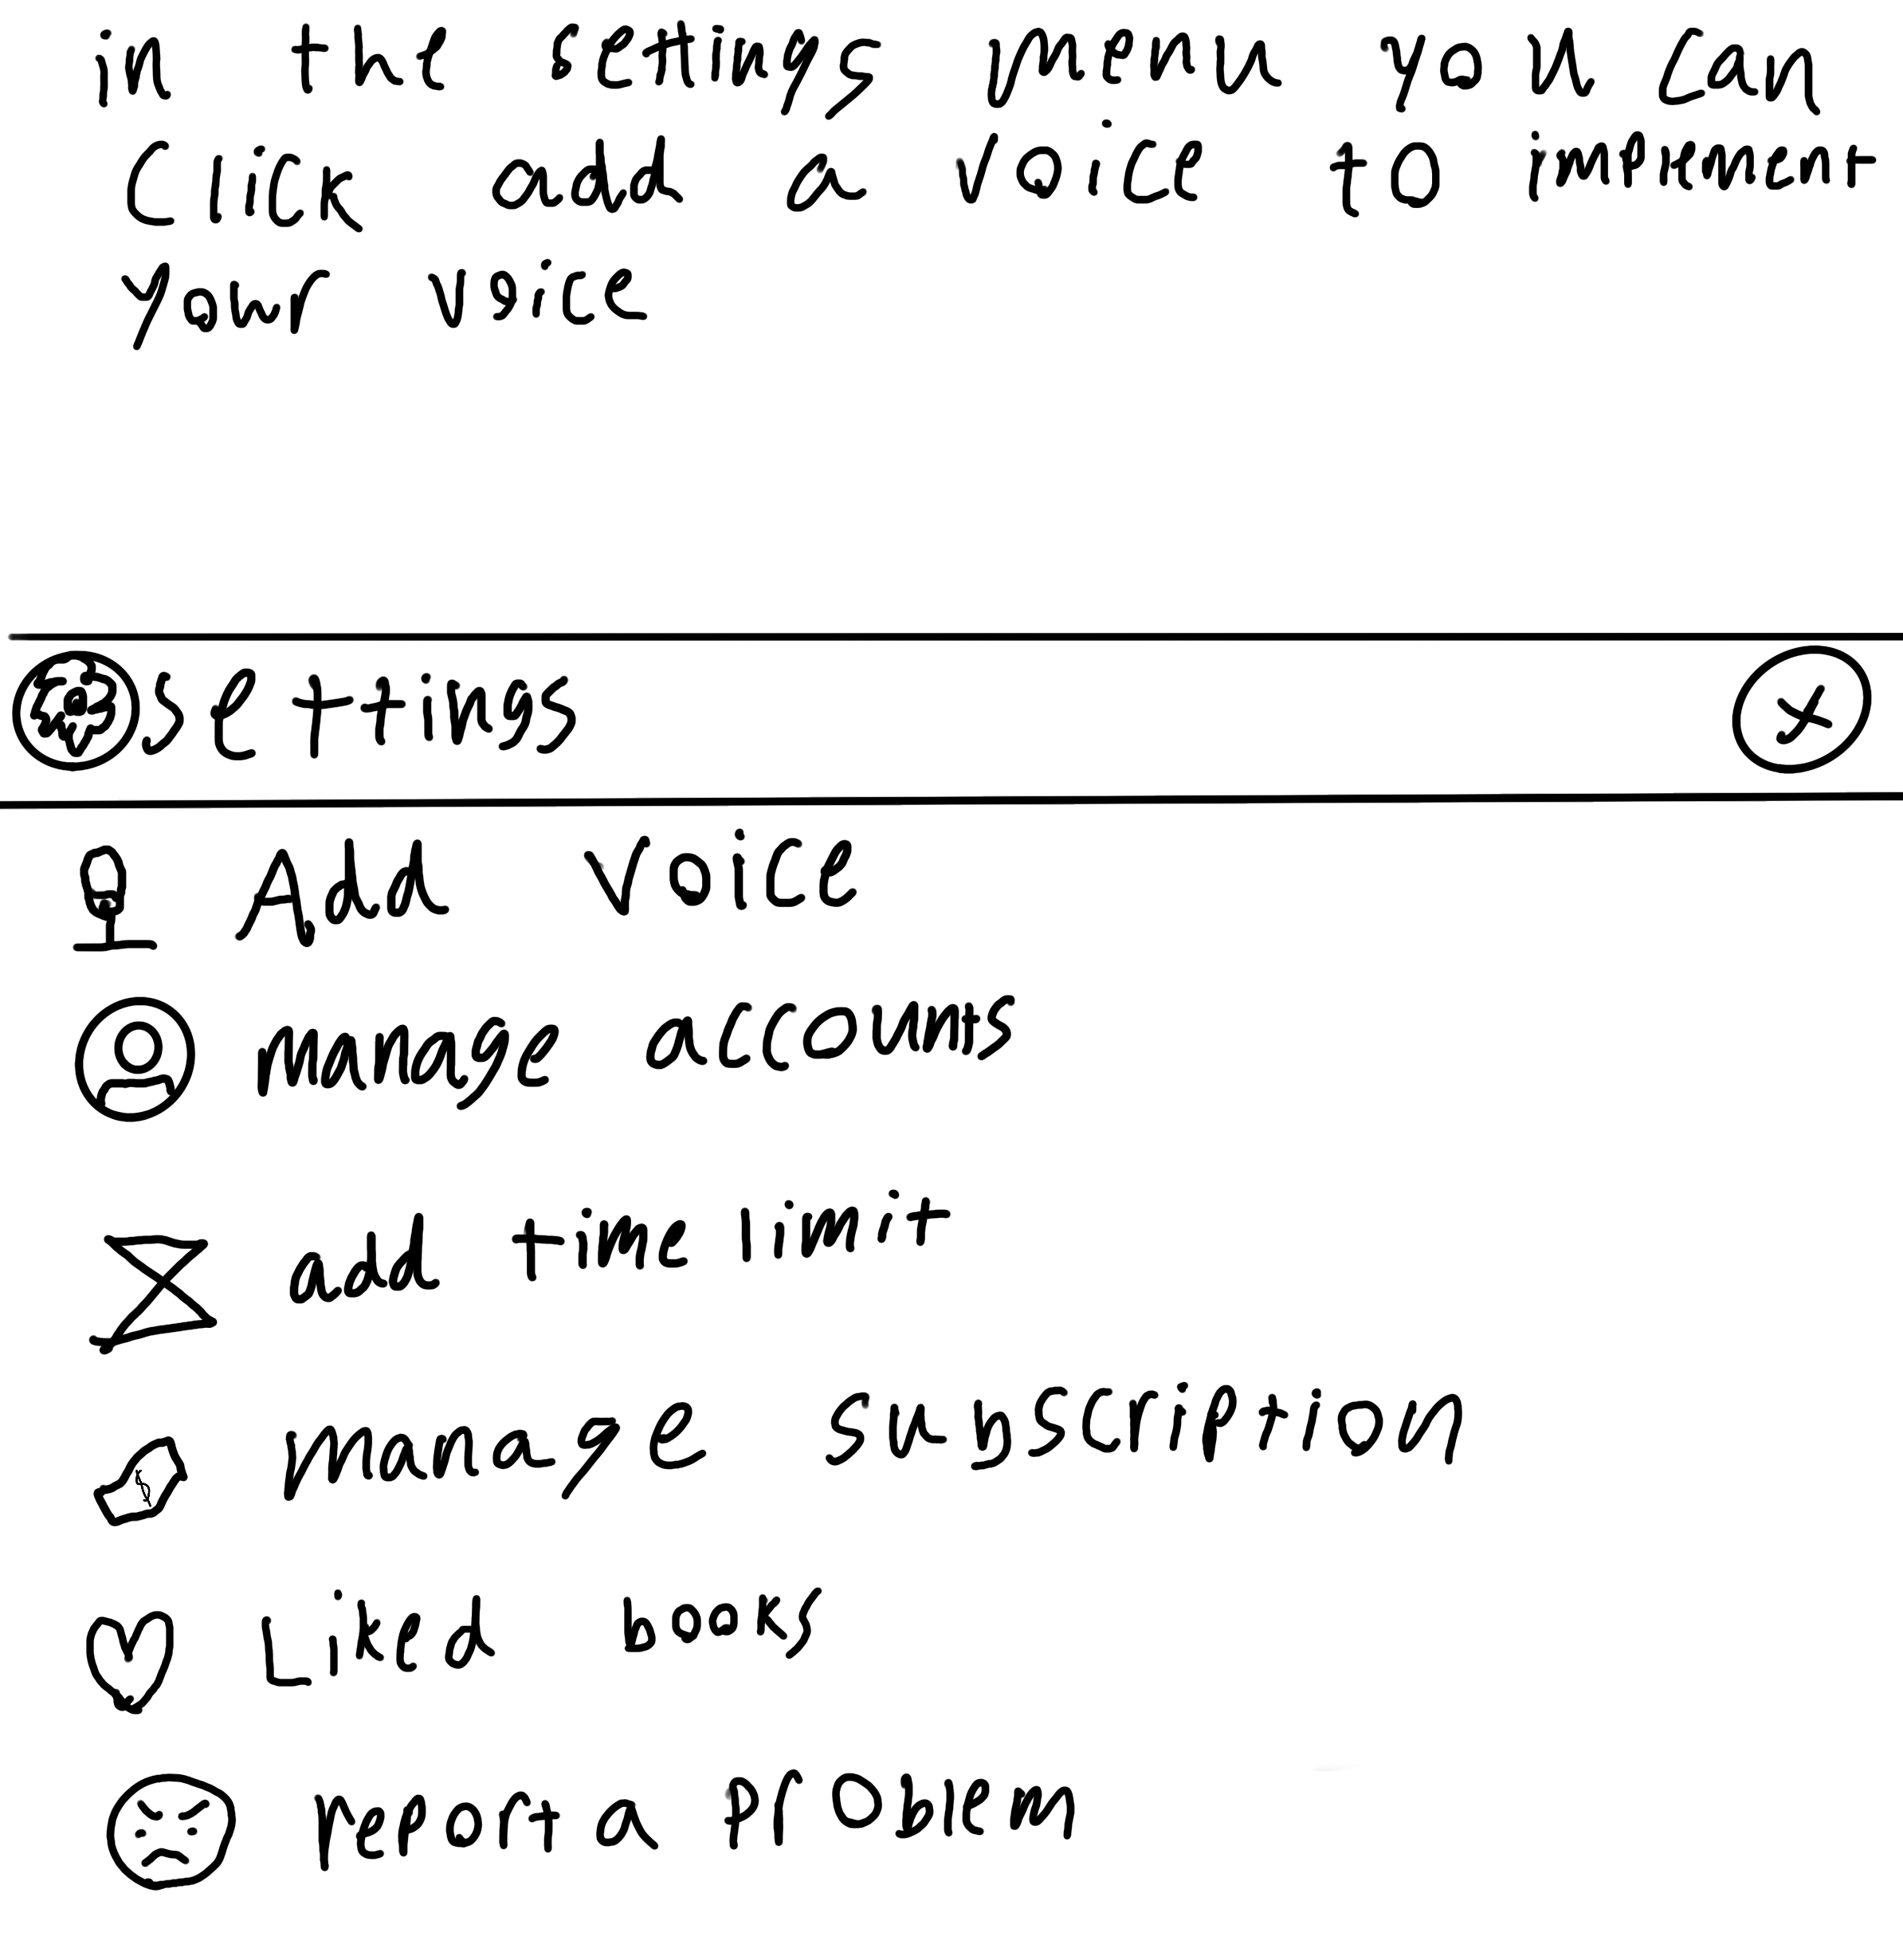 in the setings menu you can
Click add a voice to impliment
your voice
settings
Add voice
manage accounts
add time limit
manage subscription
Liked books
report a problem